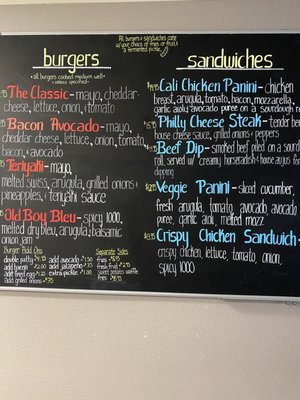 All burgers & sandwiches come
w/your choice of fries or fruit &
a fermented pickle.
burgers
all burgers cooked medium well
unless specified
The Classic - mayo, cheddar
cheese, lettuce, onion, & tomato
Bacon Avocado - mayo,
cheddar cheese, lettuce, onion, tomato,
bacon, & avocado
Teriyaki - mayo,
melted swiss, arugula, grilled onions &
pineapples, & teriyaki sauce
Old Boy Bleu - spicy 1000,
melted dry bleu, arugula, balsamic
onion jam
Burger Add Ons
double patty
add bacon
add fried egg
add grilled onions
add avocado
add jalapeño
extra pickle
Separate Sides
fries
fresh fruit
sweet potato waffle
fries
sandwiches
Cali Chicken Panini - chicken
breast, arugula, tomato, bacon, mozzarella,
garlic aioli, avocado puree on a sourdough
Philly Cheese Steak - tender
house cheese sauce, grilled onions & peppers
Beef Dip - smoked beef piled on a
roll, served w/ creamy horseradish & house au jus for
dipping
Veggie Panini - sliced cucumber,
fresh arugula, tomato, avocado, avocado
puree, garlic aioli, melted mozz
Crispy Chicken Sandwich -
crispy chicken, lettuce, tomato, onion,
spicy 1000